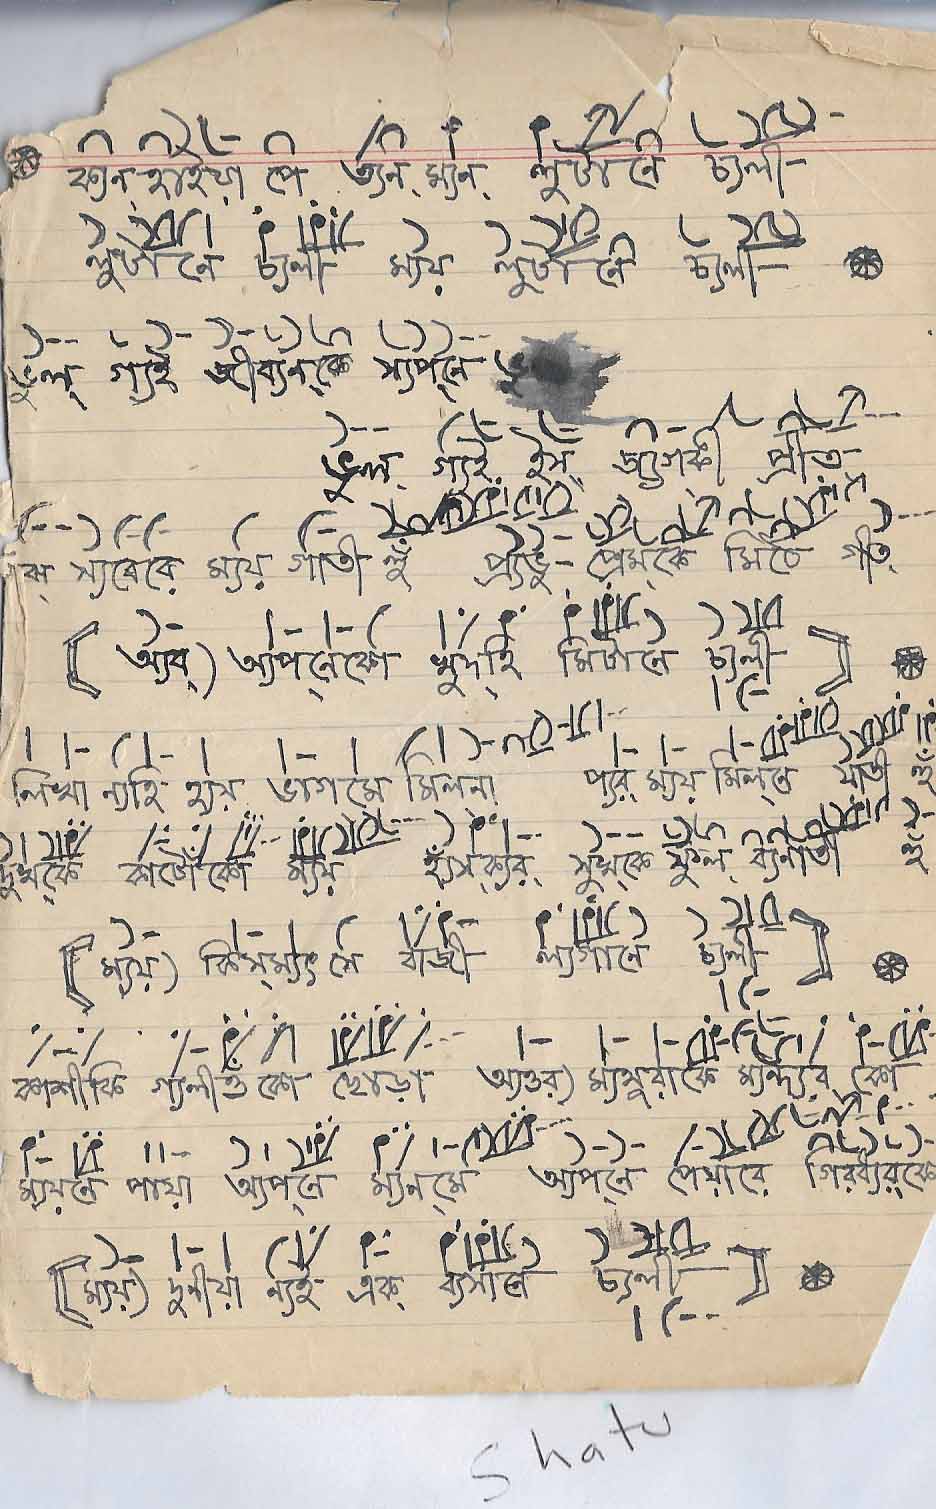 ক্যন্হাইয়া পে ত্যন্ ম্যন্ লুটানে চ্যলী
লুটানে চ্যলী ম্যয় লুটানে চ্যলী
ভুল্ গ্যই জীব্যন্‌কে স্যপ্‌নে ভু
ভুল্ গ্যই ইস্ জ্যগ্‌কী প্রীত
স্যবেরে ম্যয় গাতী হুঁ প্র্যভু-প্রেম্‌কে মিঠে গীত্
[ (অ্যব্) অ্যপ্‌নেকো খুদ্‌হি মিটানে চ্যলী ]
লিখা ন্যহি হ্যয় ভাগ্‌মে মিল্‌না প্যর্ ম্যয় মিল্‌নে যাতী হুঁ
দুখ্‌কে কাটোঁকো ম্যয় হ্যঁস্‌ক্যর্ সুখ্‌কে ফুল্ ব্যনাতী হুঁ
[ (ম্যয়) কিস্‌ম্যৎ সে বাজী ল্যগানে চ্যলী ]
কাশীকি গ্যলীওঁকো ছোড়া অ্যওর্ ম্যথুরাকে ম্যন্দ্যির্ কো
ম্যয়নে পায়া অ্যপ্‌নে ম্যন্‌মে অ্যপ্‌নে পেয়ারে গিরধ্যর্‌কো
[ (ম্যয়) দুনীয়া ন্যই এক্ ব্যসানে চ্যলী ]
Shatu